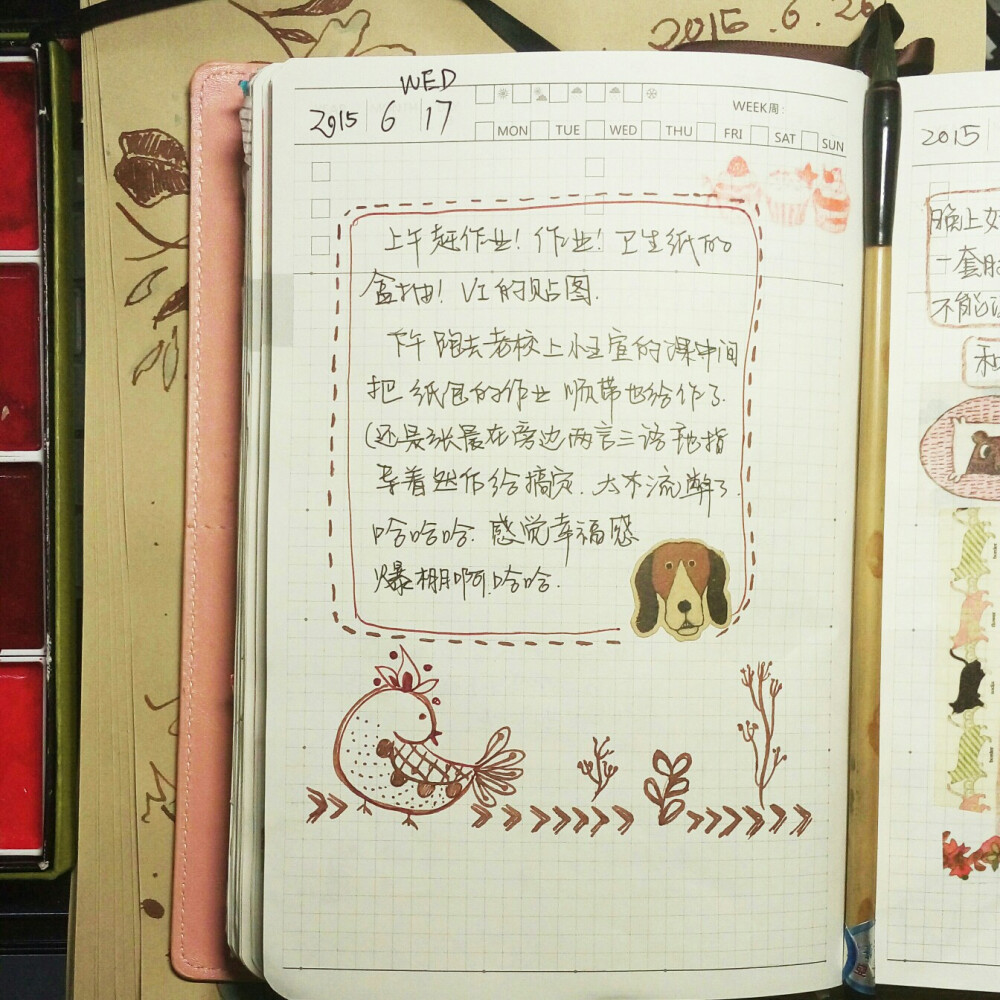 2015.6.26
WED
2015 6 17
WEEK周:
MON TUE WED THU FRI SAT SUN
上午赶作业！作业！卫生纸的
盒抽！VI的贴图.
下午跑去老校上小王宣的课中间
把纸包的作业顺带也给作了.
(还是张晨在旁边两言三语地指
导着然作给搞定.太不流弊了.
哈哈哈.感觉幸福感
爆棚啊.哈哈.
2015
晚上
一套
不能